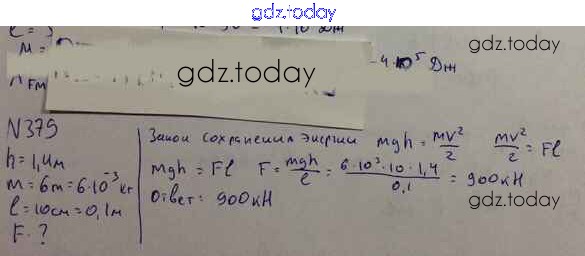 gdz.today
gdz.today
gdz.today
-4·10⁵ Дж
N379
h = 1,4м
m = 6т = 6·10⁻³ кг
l = 10см = 0,1м
F - ?
Закон сохранения энергии mgh = mv²/2 mv²/2 = Fl
mgh = Fl F = mgh/l = 6·10³·10·1,4/0,1 = 900кН
Ответ: 900кН
gdz.today